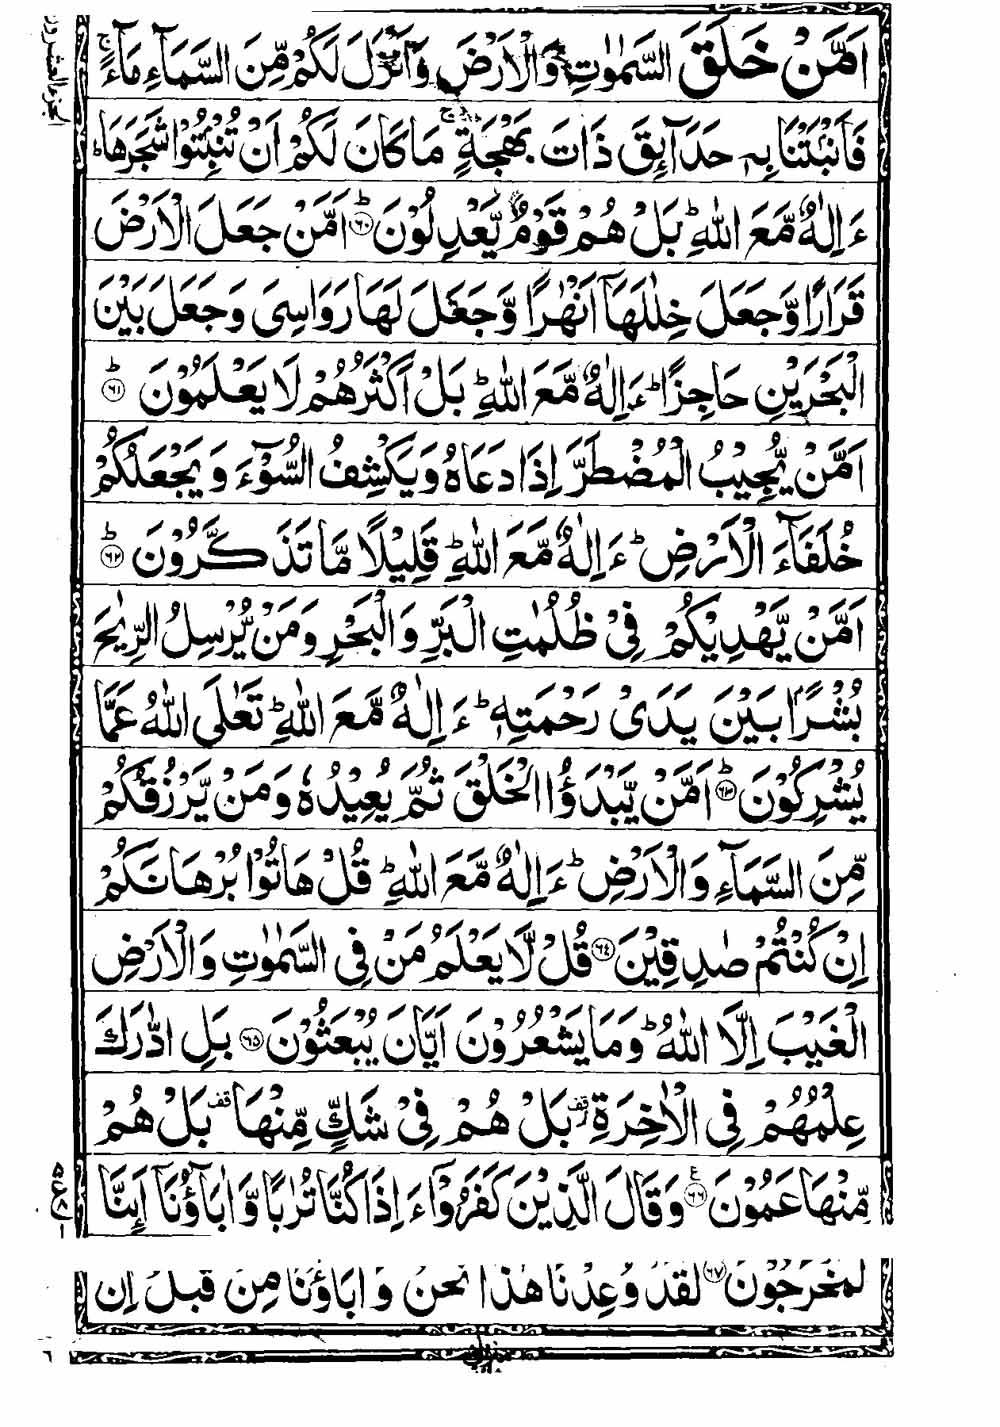 الجزء العشرون
اَمَّنْ خَلَقَ السَّمٰوٰتِ وَالْاَرْضَ وَاَنْزَلَ لَكُمْ مِّنَ السَّمَآءِ مَآءً ۚ
فَاَنْۢبَتْنَا بِهٖ حَدَآئِقَ ذَاتَ بَهْجَةٍ ۚ مَا كَانَ لَكُمْ اَنْ تُنْۢبِتُوْا شَجَرَهَا ؕ
ءَاِلٰهٌ مَّعَ اللّٰهِ ؕ بَلْ هُمْ قَوْمٌ يَّعْدِلُوْنَ ؕ ﴿۶۰﴾ اَمَّنْ جَعَلَ الْاَرْضَ
قَرَارًا وَّجَعَلَ خِلٰلَهَاۤ اَنْهٰرًا وَّجَعَلَ لَهَا رَوَاسِيَ وَجَعَلَ بَيْنَ
الْبَحْرَيْنِ حَاجِزًا ؕ ءَاِلٰهٌ مَّعَ اللّٰهِ ؕ بَلْ اَكْثَرُهُمْ لَا يَعْلَمُوْنَ ؕ ﴿۶۱﴾
اَمَّنْ يُّجِيْبُ الْمُضْطَرَّ اِذَا دَعَاهُ وَيَكْشِفُ السُّوْٓءَ وَيَجْعَلُكُمْ
خُلَفَآءَ الْاَرْضِ ؕ ءَاِلٰهٌ مَّعَ اللّٰهِ ؕ قَلِيْلًا مَّا تَذَكَّرُوْنَ ؕ ﴿۶۲﴾
اَمَّنْ يَّهْدِيْكُمْ فِيْ ظُلُمٰتِ الْبَرِّ وَالْبَحْرِ وَمَنْ يُّرْسِلُ الرِّيٰحَ
بُشْرًۢا بَيْنَ يَدَيْ رَحْمَتِهٖ ؕ ءَاِلٰهٌ مَّعَ اللّٰهِ ؕ تَعٰلَى اللّٰهُ عَمَّا
يُشْرِكُوْنَ ؕ ﴿۶۳﴾ اَمَّنْ يَّبْدَؤُا الْخَلْقَ ثُمَّ يُعِيْدُهٗ وَمَنْ يَّرْزُقُكُمْ
مِّنَ السَّمَآءِ وَالْاَرْضِ ؕ ءَاِلٰهٌ مَّعَ اللّٰهِ ؕ قُلْ هَاتُوْا بُرْهَانَكُمْ
اِنْ كُنْتُمْ صٰدِقِيْنَ ﴿۶۴﴾ قُلْ لَّا يَعْلَمُ مَنْ فِي السَّمٰوٰتِ وَالْاَرْضِ
الْغَيْبَ اِلَّا اللّٰهُ ؕ وَمَا يَشْعُرُوْنَ اَيَّانَ يُبْعَثُوْنَ ﴿۶۵﴾ بَلِ ادّٰرَكَ
عِلْمُهُمْ فِي الْاٰخِرَةِ ۫ بَلْ هُمْ فِيْ شَكٍّ مِّنْهَا ۫ بَلْ هُمْ
مِّنْهَا عَمُوْنَ ﴿۶۶﴾ وَقَالَ الَّذِيْنَ كَفَرُوْۤا ءَاِذَا كُنَّا تُرٰبًا وَّاٰبَآؤُنَاۤ اَئِنَّا
لَمُخْرَجُوْنَ ﴿۶۷﴾ لَقَدْ وُعِدْنَا هٰذَا نَحْنُ وَاٰبَآؤُنَا مِنْ قَبْلُ اِنْ